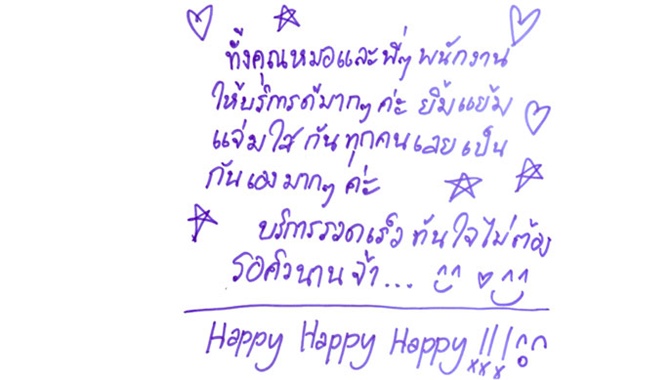 ทั้งคุณหมอและพี่ๆ พนักงาน
ให้บริการดีมากๆ ค่ะ ยิ้มแย้ม
แจ่มใส กันทุกคนเลย เป็น
กันเองมากๆ ค่ะ
บริการรวดเร็ว ทันใจไม่ต้อง
รอคิวนาน จ้า...
Happy Happy Happy !!!
xxx